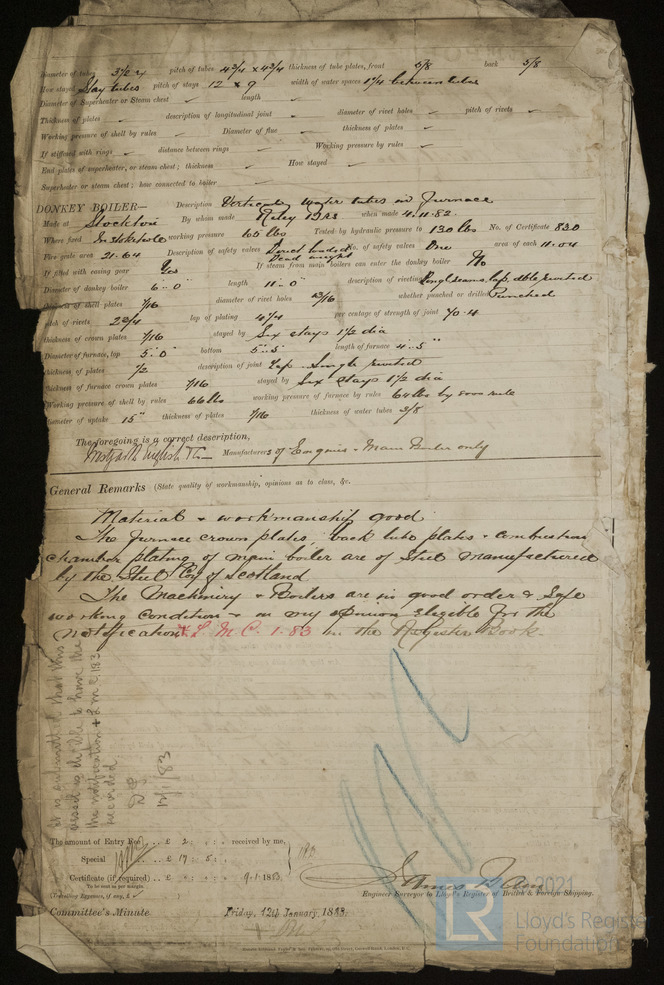 Diameter of tubes 3 1/2 " pitch of tubes 4 3/4 x 4 3/4 thickness of tube plates, front 5/8 back 5/8
How stayed Stay tubes pitch of stays 12 x 9 width of water spaces 1 1/4 between tubes
Diameter of Superheater or Steam chest length
Thickness of plates description of longitudinal joint diameter of rivet holes pitch of rivets
Working pressure of shell by rules Diameter of flue thickness of plates
If stiffened with rings distance between rings Working pressure by rules
End plates of superheater, or steam chest; thickness How stayed
Superheater or steam chest; how connected to boiler
DONKEY BOILER— Description Vertical, water tubes in furnace
Made at Stockton By whom made Riley Bros when made 4.11.82.
Where fixed In Stokehole working pressure 65 lbs Tested by hydraulic pressure to 130 lbs No. of Certificate 830
Fire grate area 21.64 Description of safety valves Direct loaded Dead weight No. of safety valves One area of each 11.04
If fitted with easing gear Yes If steam from main boilers can enter the donkey boiler No
Diameter of donkey boiler 6'.. 0" length 11'.. 0" description of riveting Long. seams, lap, dble riveted
Thickness of shell plates 7/16 diameter of rivet holes 13/16 whether punched or drilled Punched
pitch of rivets 2 3/4 lap of plating 4 1/4 per centage of strength of joint 70.4
thickness of crown plates 7/16 stayed by Six stays 1 1/2 dia
Diameter of furnace, top 5'.. 0" bottom 5'.. 5" length of furnace 4'.. 5"
thickness of plates 1/2 description of joint Lap Single riveted
thickness of furnace crown plates 7/16 stayed by Six stays 1 1/2 dia
Working pressure of shell by rules 66 lbs working pressure of furnace by rules 64 lbs by rule
diameter of uptake 15" thickness of plates 7/16 thickness of water tubes 3/8
The foregoing is a correct description,
English Manufacturers of Engines & Main Boiler only
General Remarks (State quality of workmanship, opinions as to class, &c.
Material & workmanship good.
The furnace crown plates, back tube plates & combustion
chamber plating of main boiler are of Steel manufactured
by the Steel Coy of Scotland.
The Machinery & Boilers are in good order & Safe
working Condition & in my opinion eligible for the
Notification + L.M.C. 1.83 in the Register Book.
It is submitted that this
vessel is eligible to have the
the notification + L.M.C. 1.83
recorded.
12/1/83
The amount of Entry Fee .. £ 2 : : received by me,
Special .. £ 17 : 5 :
Certificate (if required) .. £ : : 9.1.1883
To be sent as per margin.
(Travelling Expenses, if any, £ )
James
Engineer Surveyor to Lloyd's Register of British & Foreign Shipping.
Committee's Minute Friday, 12th January, 1883.
© 2021
LR
Lloyd's Register
Foundation